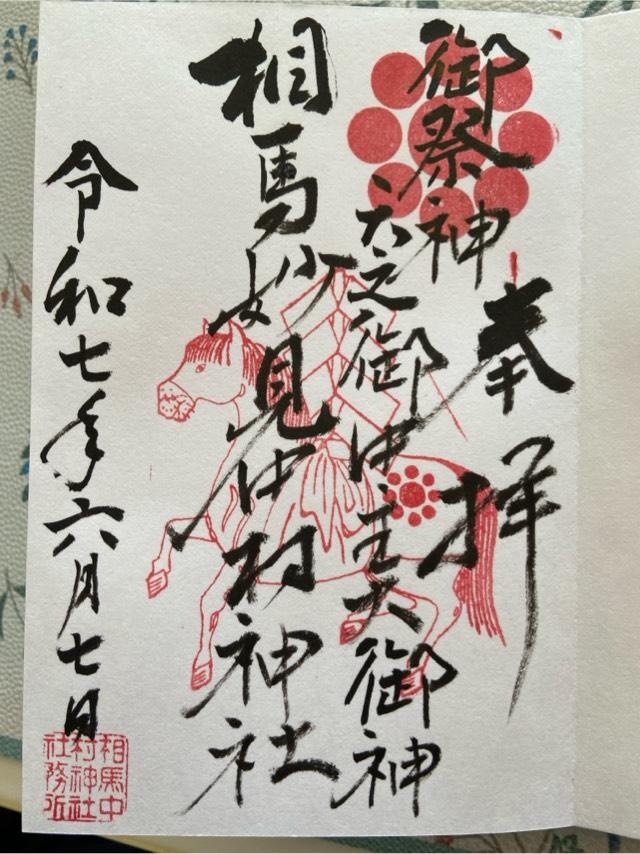 奉拝
御祭神
天之御中主大御神
相馬妙見中村神社
令和七年六月七日
相馬中
村神社
社務所